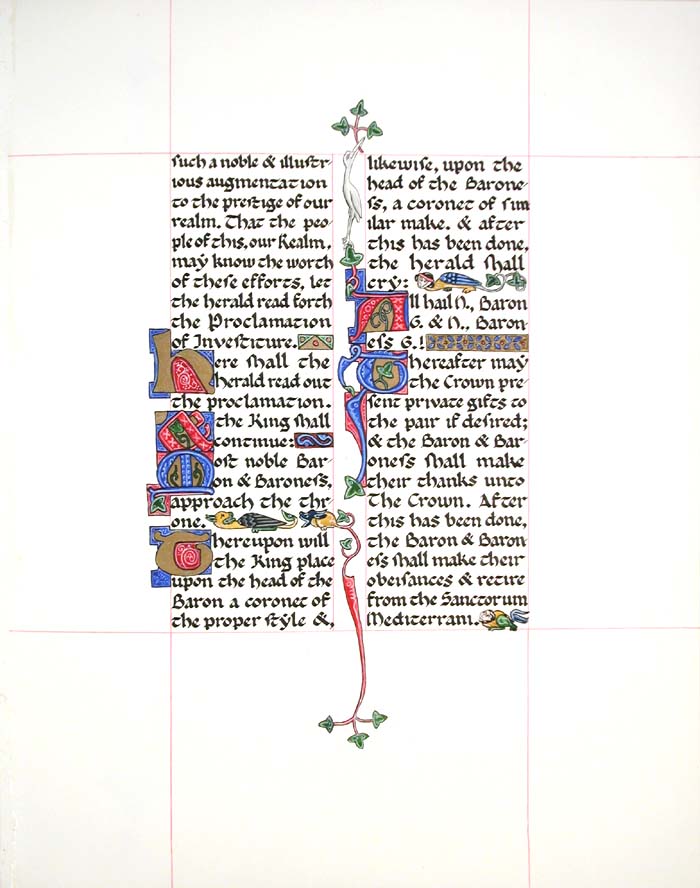 such a noble & illustr-
ious augmentation
to the prestige of our
realm. That the peo-
ple of this, our Realm,
may know the worth
of these efforts, let
the herald read forth
the Proclamation
of Investiture.
Here shall the
herald read out
the proclamation.
& the King shall
continue:
Most noble Bar-
on & Baroness,
approach the thr-
one.
Thereupon will
the King place
upon the head of the
Baron a coronet of
the proper style &,
likewise, upon the
head of the Barone-
ss, a coronet of sim
ilar make. & after
this has been done,
the herald shall
cry:
All hail N., Baron
G. & N., Baron-
ess G.!
Thereafter may
the Crown pre-
sent private gifts to
the pair if desired;
& the Baron & Bar-
oness shall make
their thanks unto
The Crown. After
this has been done,
the Baron & Baron-
ess shall make their
obeisances & retire
from the Sanctorum
Mediterrani.